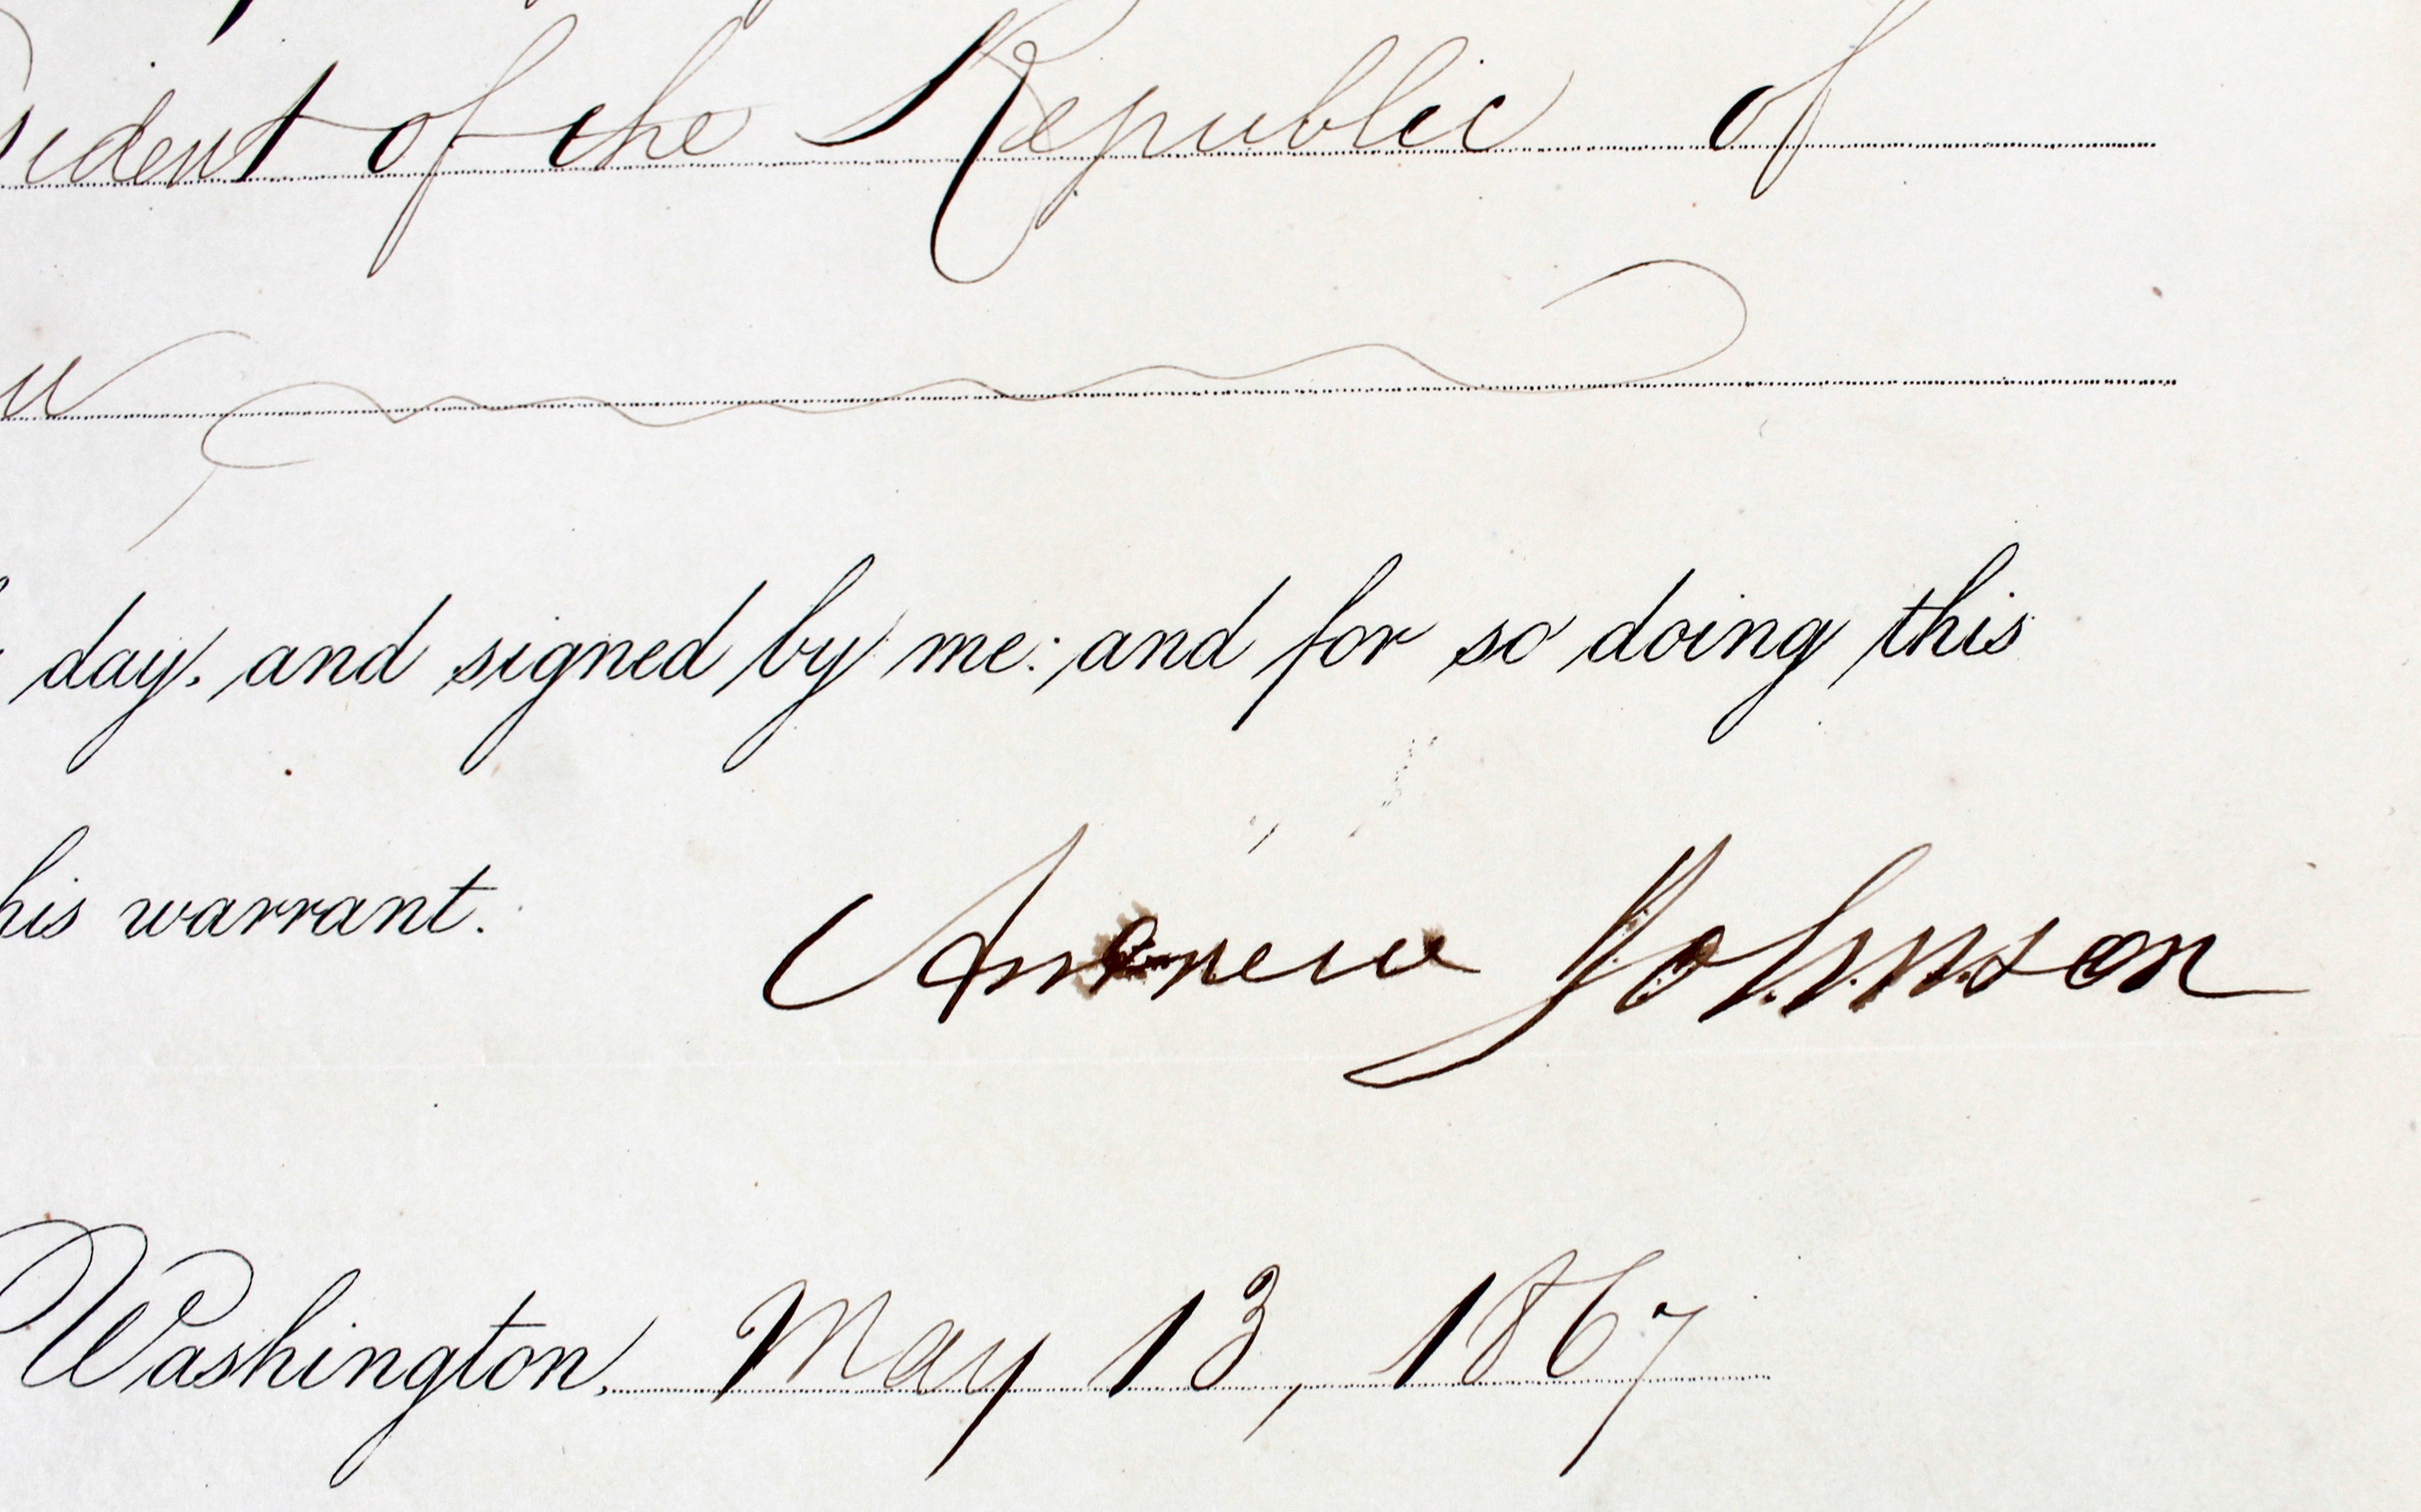 sident of the Republic of
day, and signed by me: and for so doing this
his warrant.
Andrew Johnson
Washington, May 13, 1867